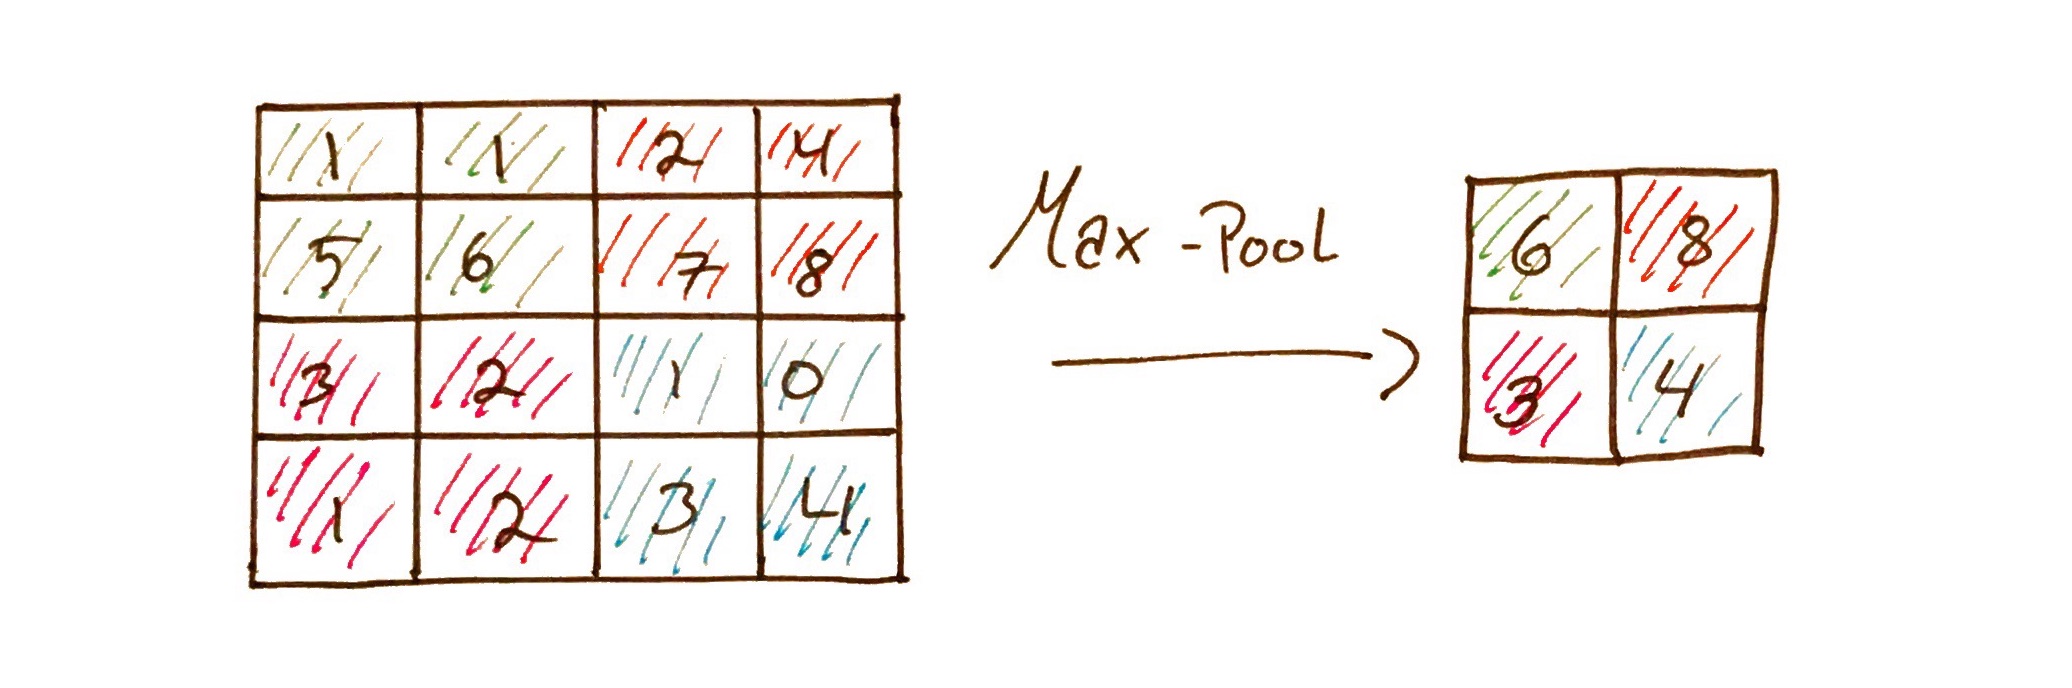 1 1 2 4
5 6 7 8
3 2 1 0
1 2 3 4
Max-Pool
6 8
3 4